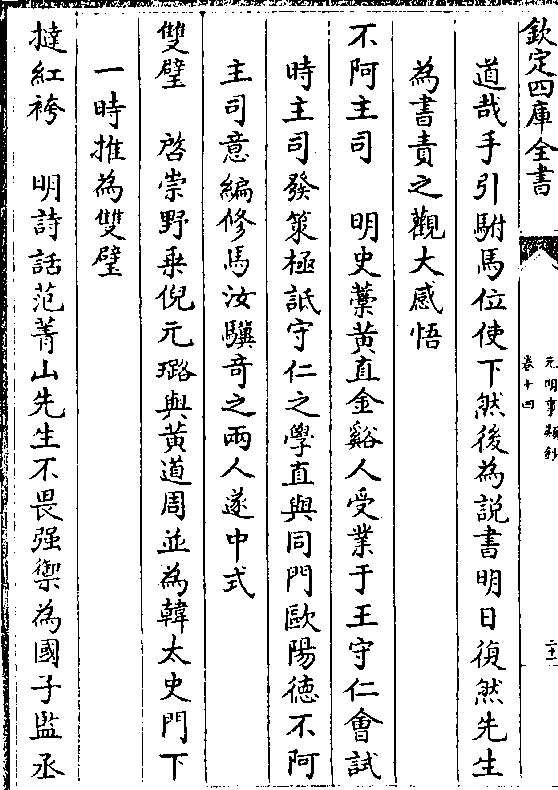 欽定四庫全書
元明事類鈔
卷十四
二十一
道哉手引駙馬位使下然後為説書明日復然先生
為書責之觀大感悟
不阿主司　明史藳黄直金谿人受業于王守仁會試
時主司發策極詆守仁之學直與同門歐陽德不阿
主司意編修馬汝驥奇之兩人遂中式
雙璧　啓崇野乗倪元璐與黄道周並為韓太史門下
一時推為雙璧
撻紅袴　明詩話范菁山先生不畏强禦為國子監丞